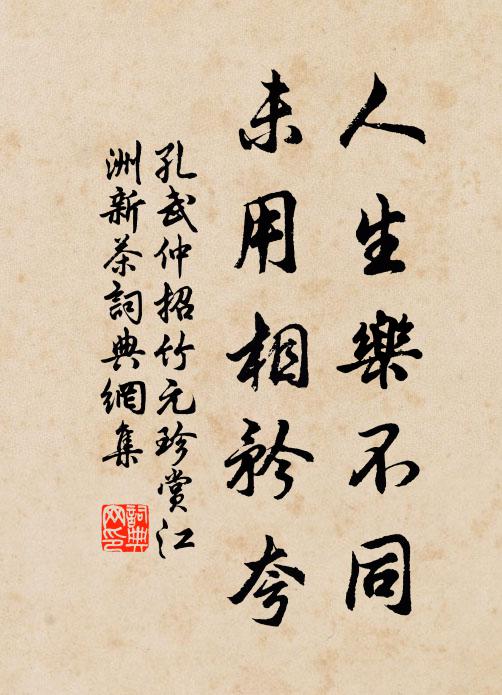 人生樂不同
未用相矜夸
孔武仲招竹元珍賞江
洲新茶詞典網集
詞典网印